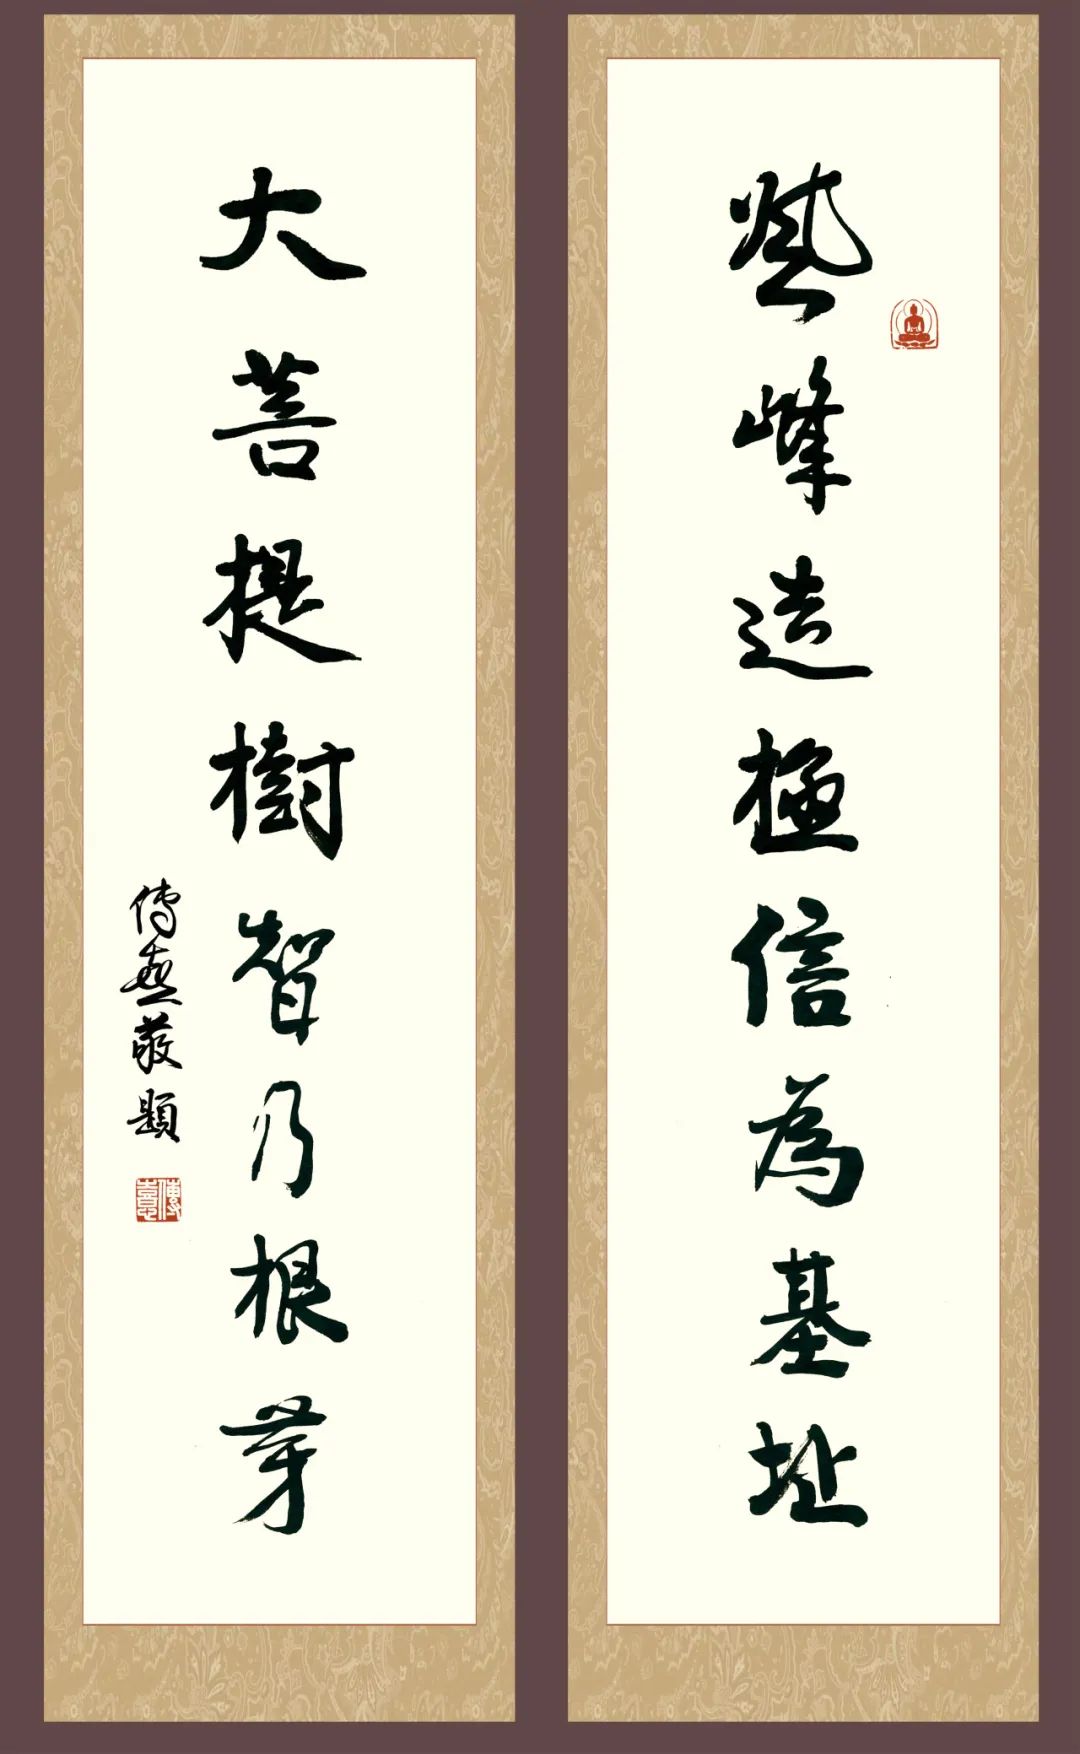 登峰造極信為基址
大菩提樹智乃根芽
傳喜敬題
傳喜